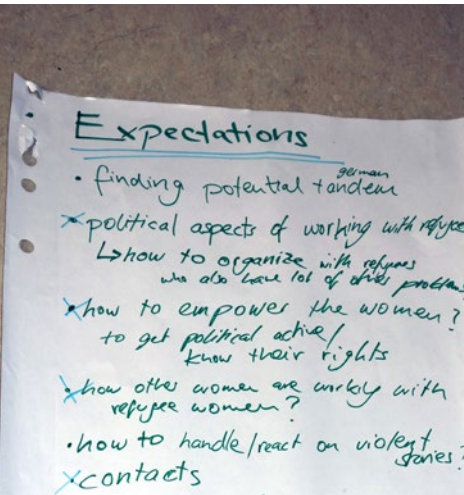 Expectations
german
• finding potential tandem
× political aspects of working with refugee
↳ how to organize with refugees
who also have lot of other problems
× how to empower the women?
to get political active/
know their rights
× how other women are working with
refugee women?
• how to handle/react on violent
stories?
× contacts